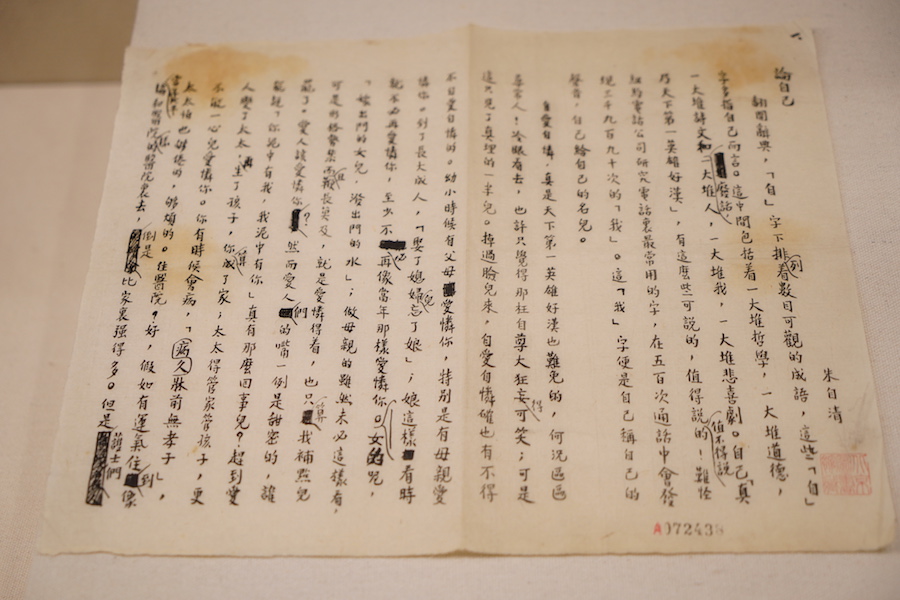 論自己
朱自清
翻開辭典,「自」字下排列着數目可觀的成語,這些「自」
字多指自己而言。這中間包括着一大堆哲學,一大堆道德,
一大堆詩文和廢話,一大堆人,一大堆我,一大堆悲喜劇。自己「真
乃天下第一英雄好漢」,有這麼些可說的,值得說值不得說的!難怪
紐約電話公司研究電話裏最常用的字,在五百次通話中會發
現三千九百九十次的「我」。這「我」字便是自己稱自己的
聲音,自己給自己的名兒。
自愛自憐!真是天下第一英雄好漢也難免的,何況區區
尋常人!冷眼看去,也許只覺得那枉自尊大狂妄得可笑;可是
這只見了真理的一半兒。掉過臉兒來,自愛自憐確也有不得
不自愛自憐的。幼小時候有父母愛憐你,特別是有母親愛
憐你。到了長大成人,「娶了媳婦兒忘了娘」;娘這樣看時
就不必再愛憐你,至少不必再像當年那樣愛憐你。女的呢,
「嫁出門的女兒,潑出門的水」;做母親的雖然未必這樣看,
可是形格勢禁而且鞭長莫及,就是愛憐得着,也只算找補點兒
罷了。愛人該愛憐你?然而愛人們的嘴一例是甜蜜的,誰
能說「你泥中有我,我泥中有你」真有那麼回事兒?趕到愛
人變了太太,再生了孩子,你算成了家,太太得管家管孩子,更
不能一心兒愛憐你。你有時候會病,「久病牀前無孝子」,
太太怕也夠倦的,夠煩的。住醫院?好,假如有運氣住到像
協和醫院樣的醫院裏去,倒是比家裏強得多。但是護士們
A072438